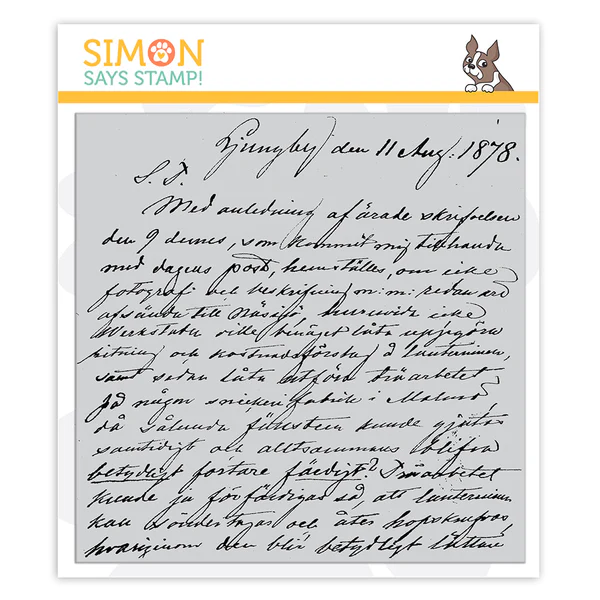 SIMON
SAYS STAMP!
Ljungby den 11 Aug. 1878.
S. T.
Med anledning af ärade skrifvelsen
den 9 dennes, som kommit mig tillhanda
med dagens post, hemställes, om icke
fotografi och beskrifning m: m: redan äro
afsända till Nässjö, huruvida icke
Werkstaden ville benäget låta uppgöra
ritning och kostnadsförslag å lanterninen,
samt sedan låta utföra träarbetet
på någon snickerifabrik i Malmö,
då sålunda fönstren kunde gjutas
samtidigt och alltsammans blifva
betydligt fortare färdigt? Träarbetet
kunde ju förfärdigas så, att lanterninen
kan söndertagas och åter hopskrufvas,
hvarigenom den blir betydligt lättare